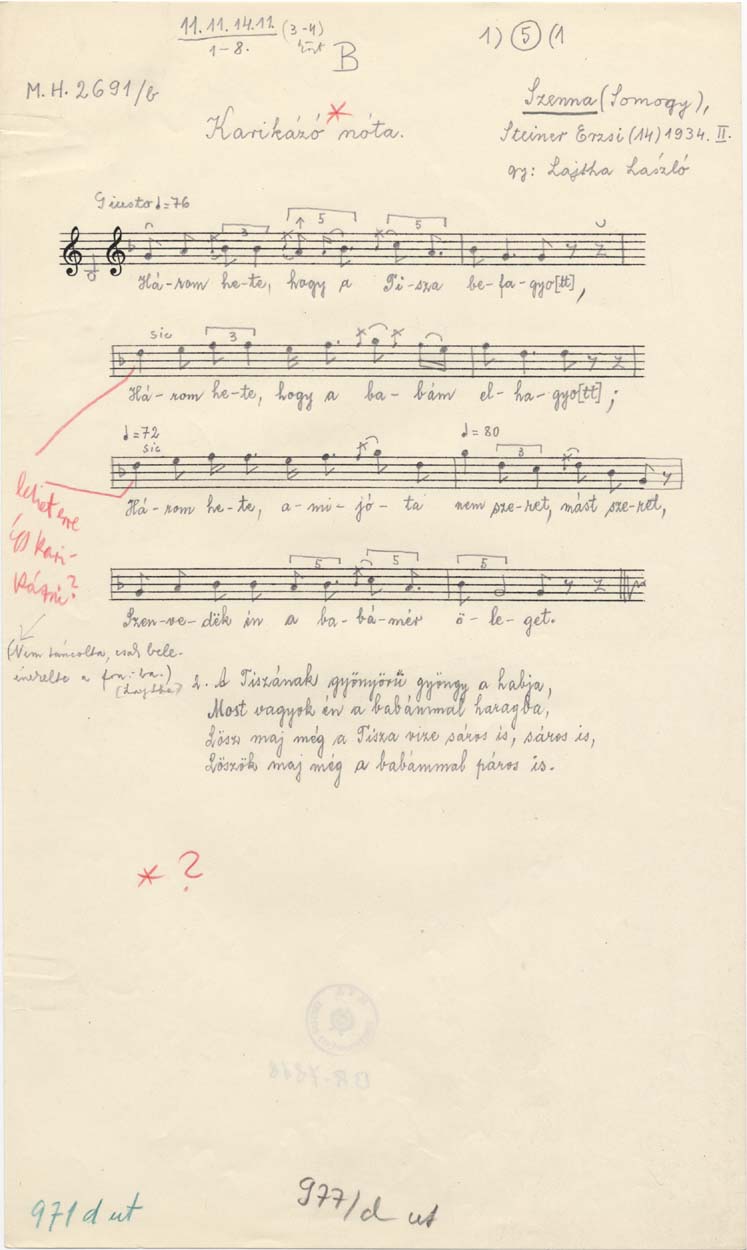 11. 11. 14. 11. (3-4)
1-8.
B
1) 5 (1
M.H. 2691/b
Szenna (Somogy),
Karikázó * nóta.
Steiner Erzsi (14) 1934. II.
gy: Lajtha László
Giusto ♩=76
3 5 5
Há-rom he-te, hogy a Ti-sza be-fa-gyo[tt],
sic 3
Há-rom he-te, hogy a ba-bám el-ha-gyo[tt];
♩=72 ♩=80
sic 3
Há-rom he-te, a-mi-jó-ta nem sze-ret, mást sze-ret,
lehet erre
így kari-
kázni?
5 5 5
Szen-ve-dëk én a ba-bá-mér ö-le-get.
(Nem táncolta, csak bele-
énekelte a fon.-ba.)
[Lajtha]
2. A Tiszának gyönyörű gyöngy a habja,
Most vagyok én a babámmal haragba,
Lösz maj még a Tisza vize sáros is, sáros is,
Löszök maj még a babámmal páros is.
* ?
971 d ut
977/d ut